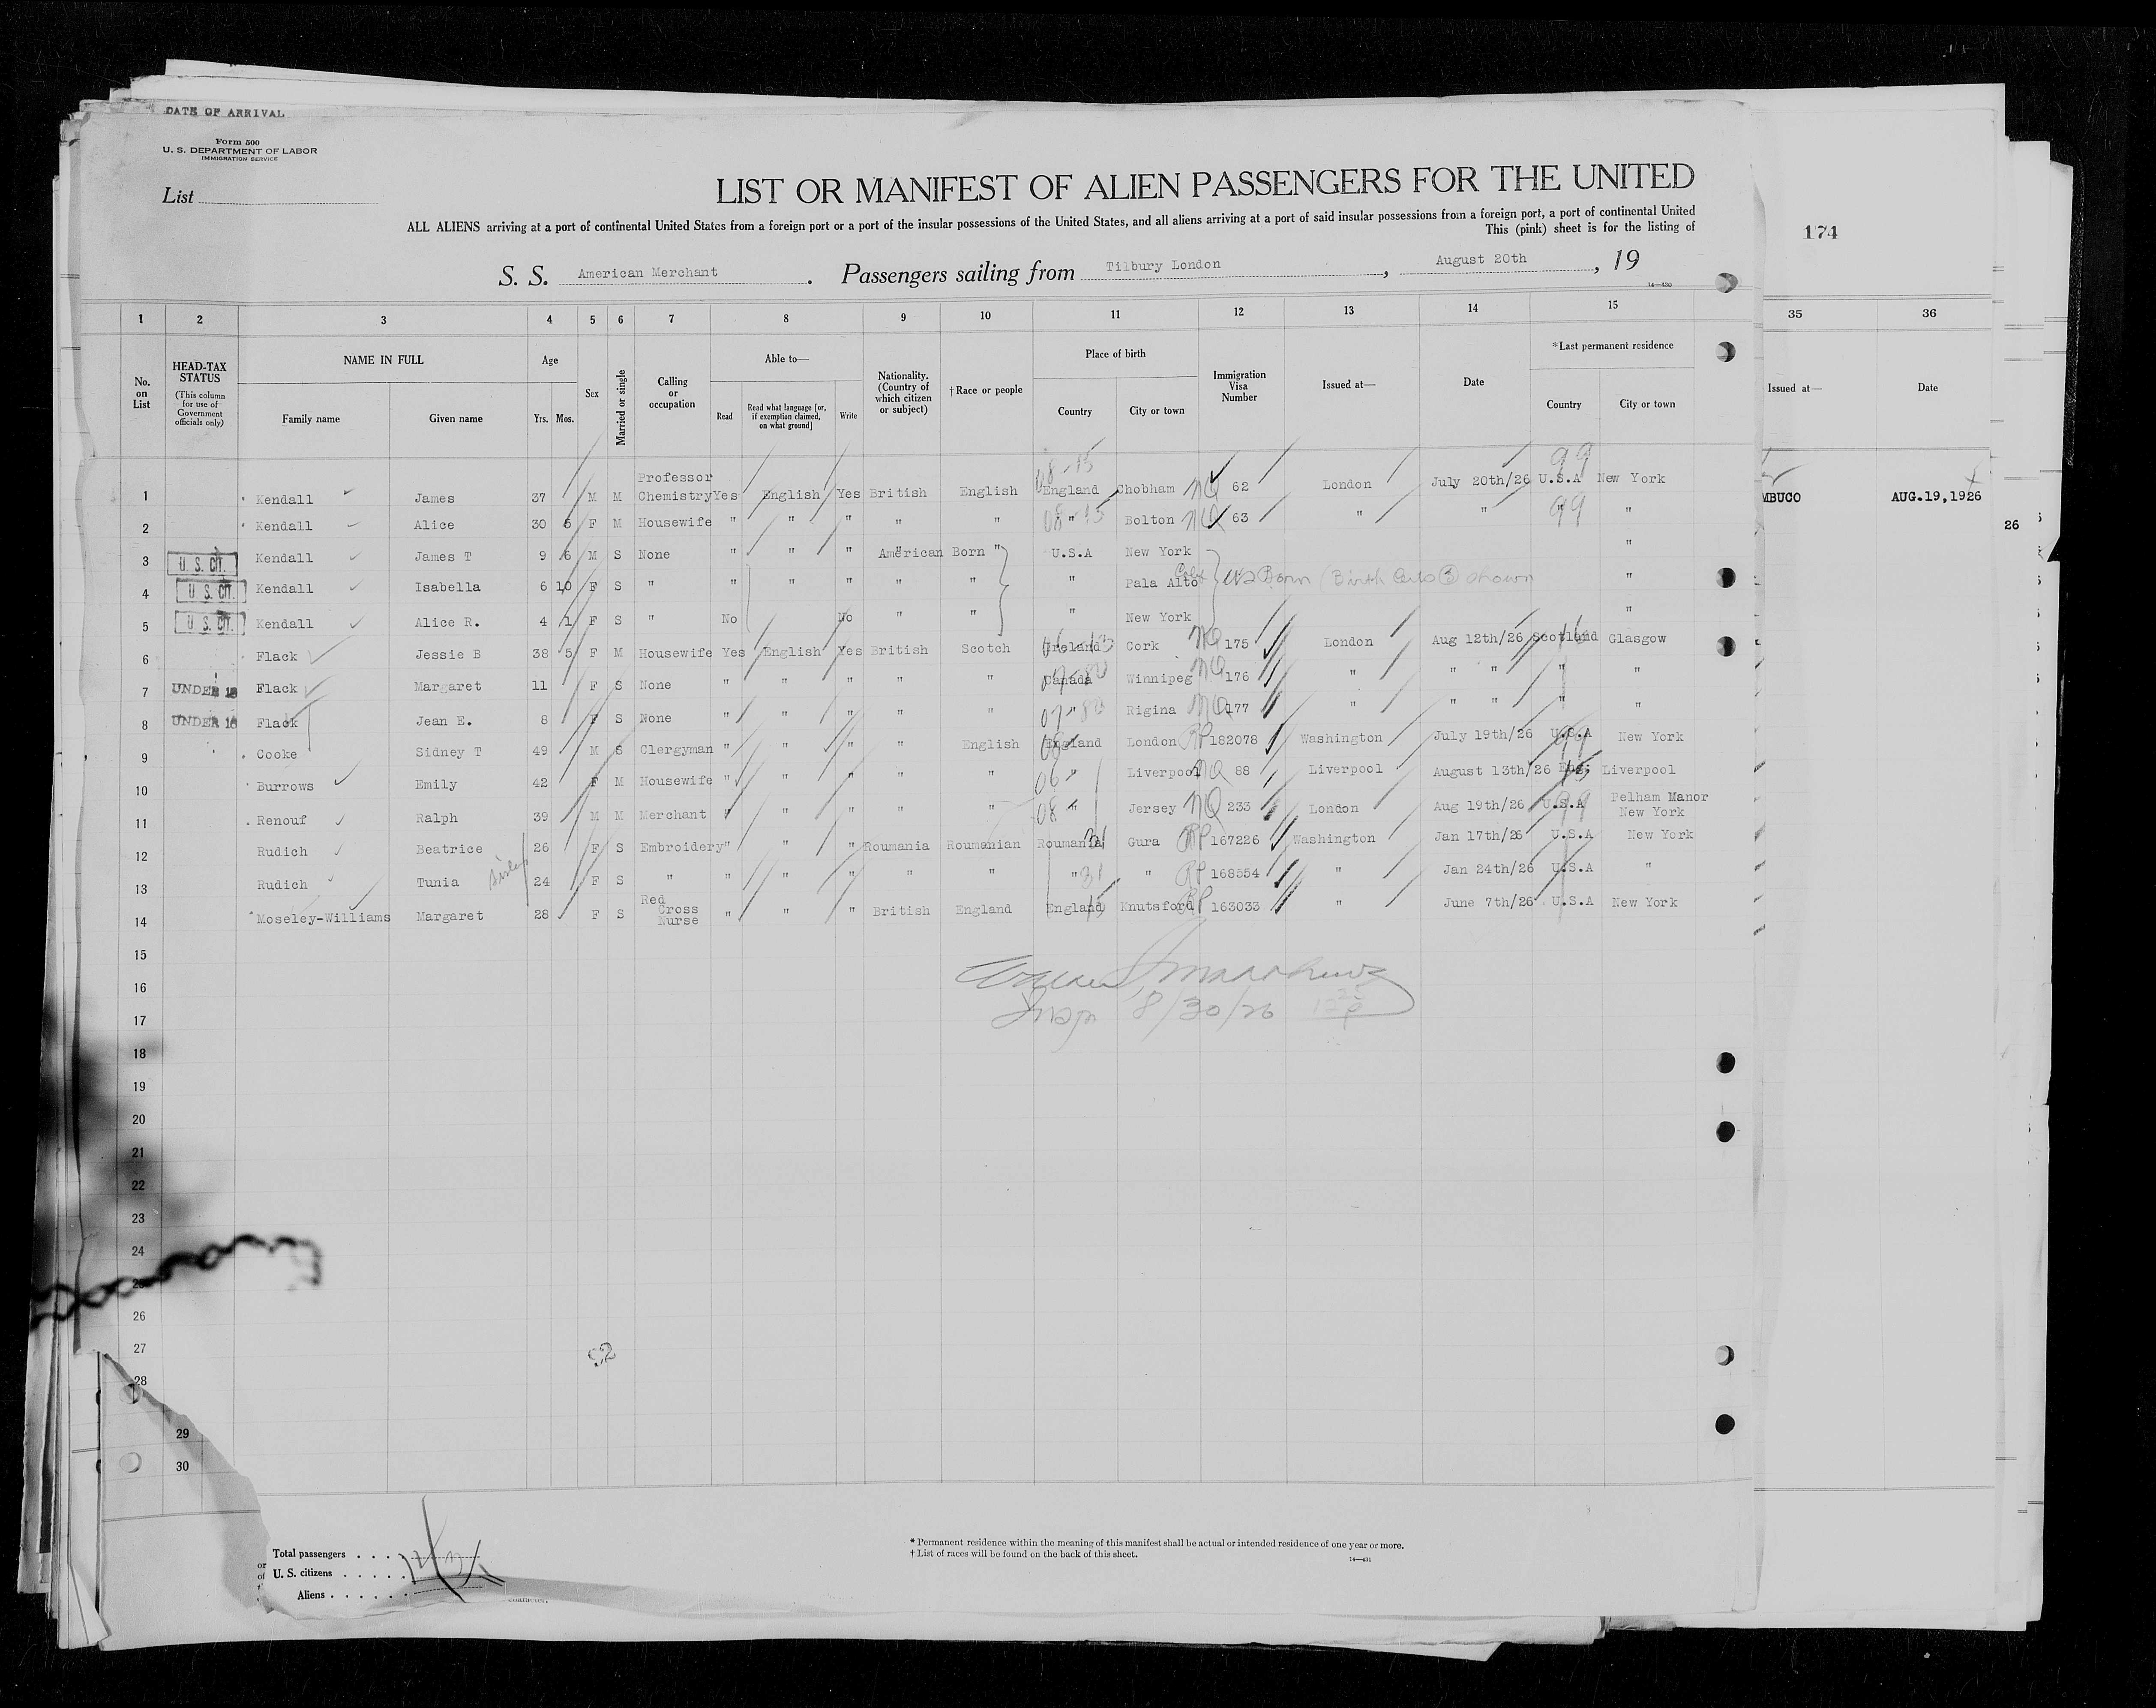 DATE OF ARRIVAL
Form 500
U. S. DEPARTMENT OF LABOR
IMMIGRATION SERVICE
List
LIST OR MANIFEST OF ALIEN PASSENGERS FOR THE UNITED
ALL ALIENS arriving at a port of continental United States from a foreign port or a port of the insular possessions of the United States, and all aliens arriving at a port of said insular possessions from a foreign port, a port of continental United
This (pink) sheet is for the listing of
174
S. S. American Merchant . Passengers sailing from Tilbury London , August 20th , 19
14—430
1 2 3 4 5 6 7 8 9 10 11 12 13 14 15 35 36
No. on List
HEAD-TAX STATUS
(This column for use of Government officials only)
NAME IN FULL
Family name Given name
Age
Yrs. Mos.
Sex
Married or single
Calling or occupation
Able to—
Read Read what language [or, if exemption claimed, on what ground] Write
Nationality. (Country of which citizen or subject)
† Race or people
Place of birth
Country City or town
Immigration Visa Number
Issued at—
Date
* Last permanent residence
Country City or town
Issued at—
Date
1 Kendall James 37 M M Professor Chemistry Yes English Yes British English 08-15 England Chobham NQ 62 London July 20th/26 99 U.S.A New York
MBUCO AUG.19,1926
2 Kendall Alice 30 5 F M Housewife " " " " " 08-15 " Bolton NQ 63 " " 99 " "
26
3 U. S. CIT. Kendall James T 9 6 M S None " " " American Born " U.S.A New York "
4 U. S. CIT. Kendall Isabella 6 10 F S " " " " " " " Pala Alto US Born (Birth Certs 3 shown "
5 U. S. CIT. Kendall Alice R. 4 1 F S " No No " " " New York "
6 Flack Jessie B 38 5 F M Housewife Yes English Yes British Scotch Ireland Cork NQ 175 London Aug 12th/26 Scotland Glasgow
7 UNDER 16 Flack Margaret 11 F S None " " " " " Canada Winnipeg NQ 176 " " " " "
8 UNDER 16 Flack Jean E. 8 F S None " " " " " " Rigina NQ 177 " " " " "
9 Cooke Sidney T 49 M S Clergyman " " " " English England London RP 182078 Washington July 19th/26 U.S.A New York
10 Burrows Emily 42 F M Housewife " " " " " " Liverpool NQ 88 Liverpool August 13th/26 Eng. Liverpool
11 Renouf Ralph 39 M M Merchant " " " " " 08 " Jersey NQ 233 London Aug 19th/26 U.S.A Pelham Manor New York
12 Rudich Beatrice 26 F S Embroidery " " " Roumania Roumanian Roumania Gura RP 167226 Washington Jan 17th/26 U.S.A New York
13 Rudich Tunia sister 24 F S " " " " " " " 31 " RP 168554 " Jan 24th/26 U.S.A "
14 Moseley-Williams Margaret 28 F S Red Cross Nurse " " " British England England Knutsford RP 163033 " June 7th/26 U.S.A New York
15
16
17 Insp 8/30/26
18
19
20
21
22
23
24
26
27
28
29
30
Total passengers
U. S. citizens
Aliens
* Permanent residence within the meaning of this manifest shall be actual or intended residence of one year or more.
† List of races will be found on the back of this sheet.
14—431